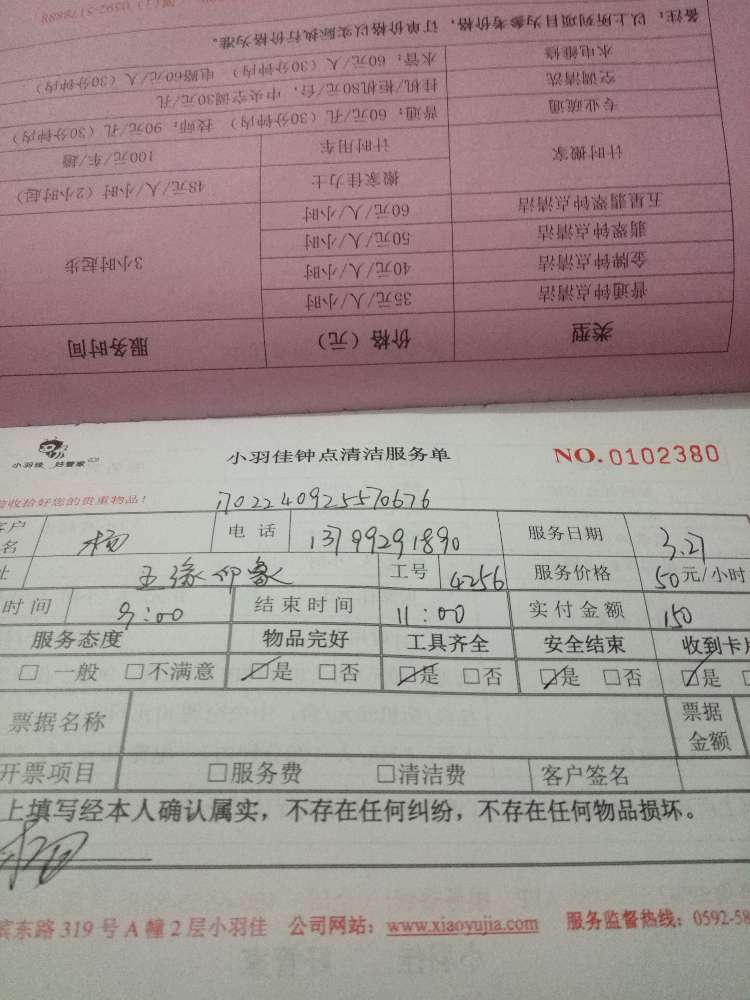 类型 价格（元） 服务时间
普通钟点清洁 35元/人/小时 3小时起步
金牌钟点清洁 40元/人/小时
翡翠钟点清洁 50元/人/小时
五星翡翠钟点清洁 60元/人/小时
计时搬家 搬家佳力士 48元/人/小时（2小时起）
计时用车 100元/车/趟
专业疏通 普通：60元/孔（30分钟内） 技师：90元/孔（30分钟内）
空调清洗 挂机/柜机80元/台，中央空调30元/孔
水电维修 水管：60元/人（30分钟内） 电路60元/人（30分钟内）
备注：以上所列项目为参考价格，订单价格以实际执行价格为准。
小羽佳 好管家
小羽佳钟点清洁服务单 NO.0102380
验收拾好您的贵重物品！
1702240925570676
客户名 杨 电话 13799291890 服务日期 3.27
址 工号 4256 服务价格 50元/小时
时间 9:00 结束时间 11:00 实付金额 150
服务态度 物品完好 工具齐全 安全结束 收到卡片
□一般 □不满意 □是 □否 □是 □否 □是 □否 □是
票据名称 票据金额
开票项目 □服务费 □清洁费 客户签名
上填写经本人确认属实，不存在任何纠纷，不存在任何物品损坏。
滨东路319号A幢2层小羽佳 公司网站：www.xiaoyujia.com 服务监督热线：0592-58